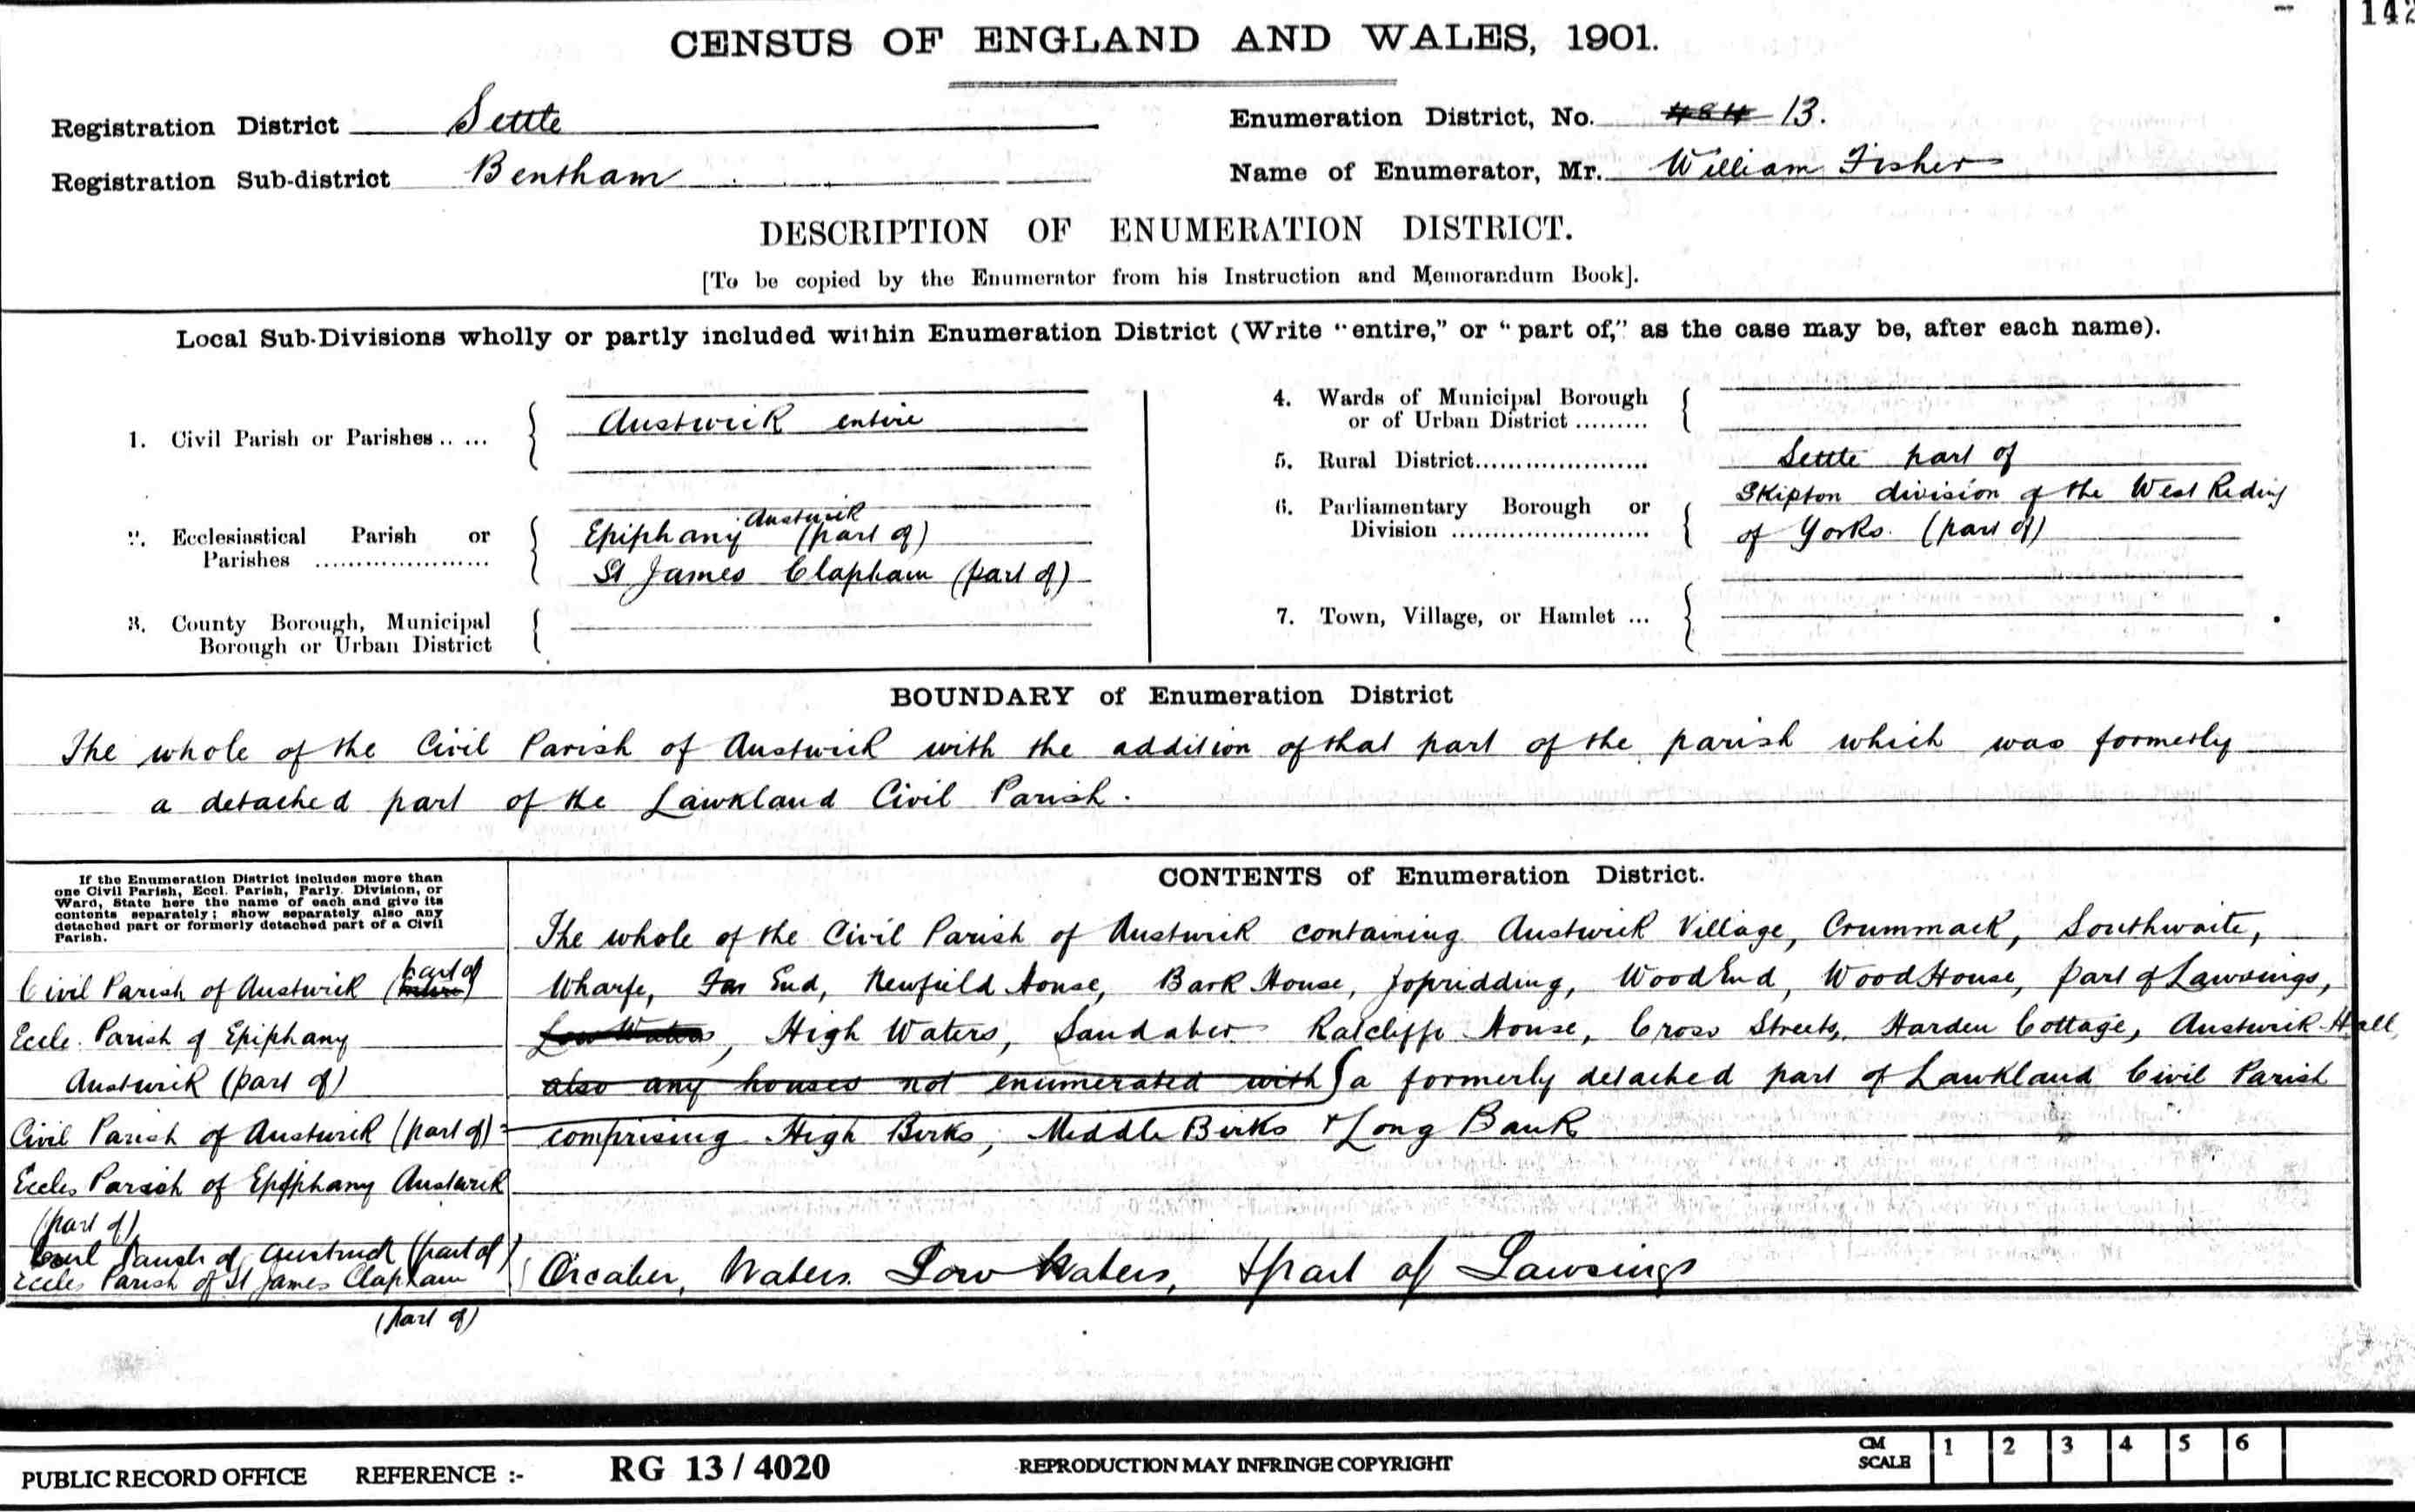 142
CENSUS OF ENGLAND AND WALES, 1901.
Registration District Settle
Enumeration District, No. 13.
Registration Sub-district Bentham
Name of Enumerator, Mr. William Fisher
DESCRIPTION OF ENUMERATION DISTRICT.
[To be copied by the Enumerator from his Instruction and Memorandum Book].
Local Sub-Divisions wholly or partly included within Enumeration District (Write "entire," or "part of," as the case may be, after each name).
1. Civil Parish or Parishes
Austwick entire
2. Ecclesiastical Parish or
Parishes
Austwick
Epiphany (part of)
St James Clapham (part of)
3. County Borough, Municipal
Borough or Urban District
4. Wards of Municipal Borough
or of Urban District
5. Rural District
Settle part of
6. Parliamentary Borough or
Division
Skipton division of the West Riding
of Yorks. (part of)
7. Town, Village, or Hamlet
BOUNDARY of Enumeration District
The whole of the Civil Parish of Austwick with the addition of that part of the parish which was formerly
a detached part of the Lawkland Civil Parish.
If the Enumeration District includes more than
one Civil Parish, Eccl. Parish, Parly. Division, or
Ward, State here the name of each and give its
contents separately; show separately also any
detached part or formerly detached part of a Civil
Parish.
Civil Parish of Austwick (part of)
Eccle. Parish of Epiphany
Austwick (part of)
Civil Parish of Austwick (part of)
Eccles Parish of Epiphany Austwick
(part of)
Civil Parish of Austwick (part of)
Eccles Parish of St James Clapham
(part of)
CONTENTS of Enumeration District.
The whole of the Civil Parish of Austwick containing Austwick Village, Crummack, Southwaite,
Wharfe, Far End, Newfield House, Bark House, Jopridding, Wood End, Wood House, part of Lawsings,
Low Waters, High Waters, Sandaber Ratcliffe House, Cross Streets, Harden Cottage, Austwick Hall,
also any houses not enumerated with a formerly detached part of Lawkland Civil Parish
comprising High Birks, Middle Birks + Long Bank
Orcaber, Waters. Low Waters, + part of Lawsings
PUBLIC RECORD OFFICE REFERENCE :- RG 13 / 4020 REPRODUCTION MAY INFRINGE COPYRIGHT CM SCALE 1 2 3 4 5 6